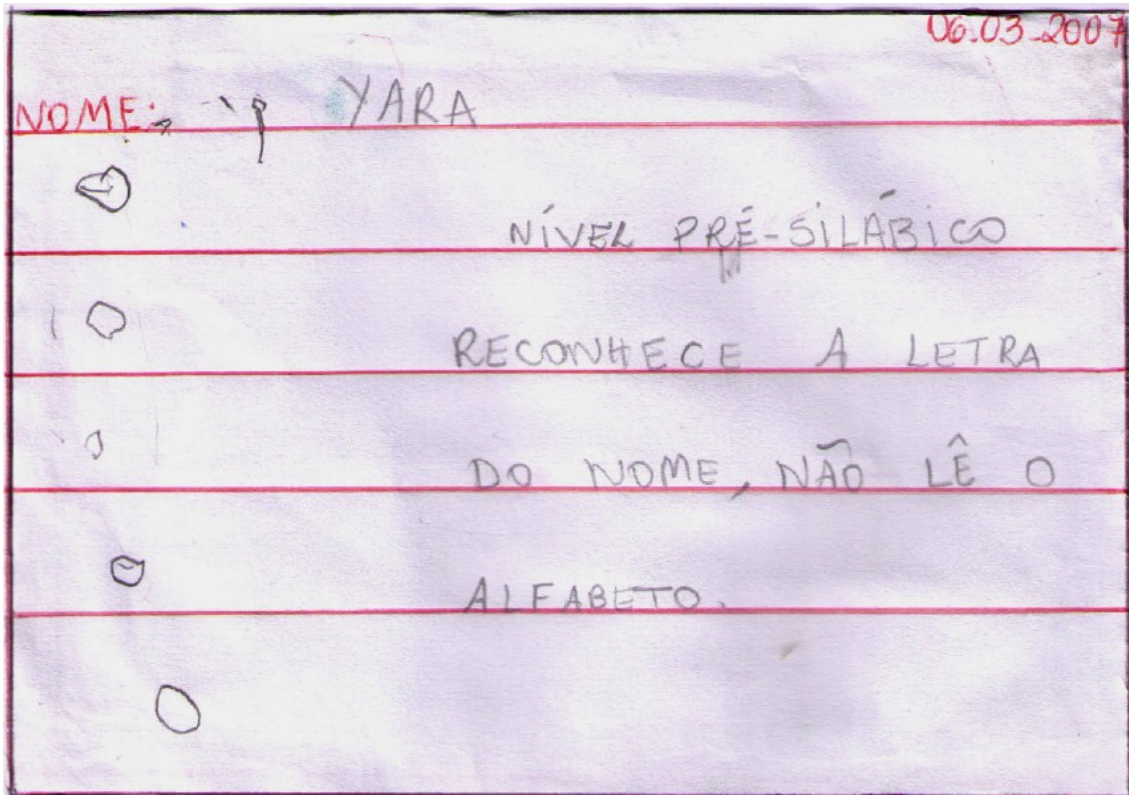 06.03.2007
NOME: YARA
NÍVEL PRÉ-SILÁBICO
RECONHECE A LETRA
DO NOME, NÃO LÊ O
ALFABETO.